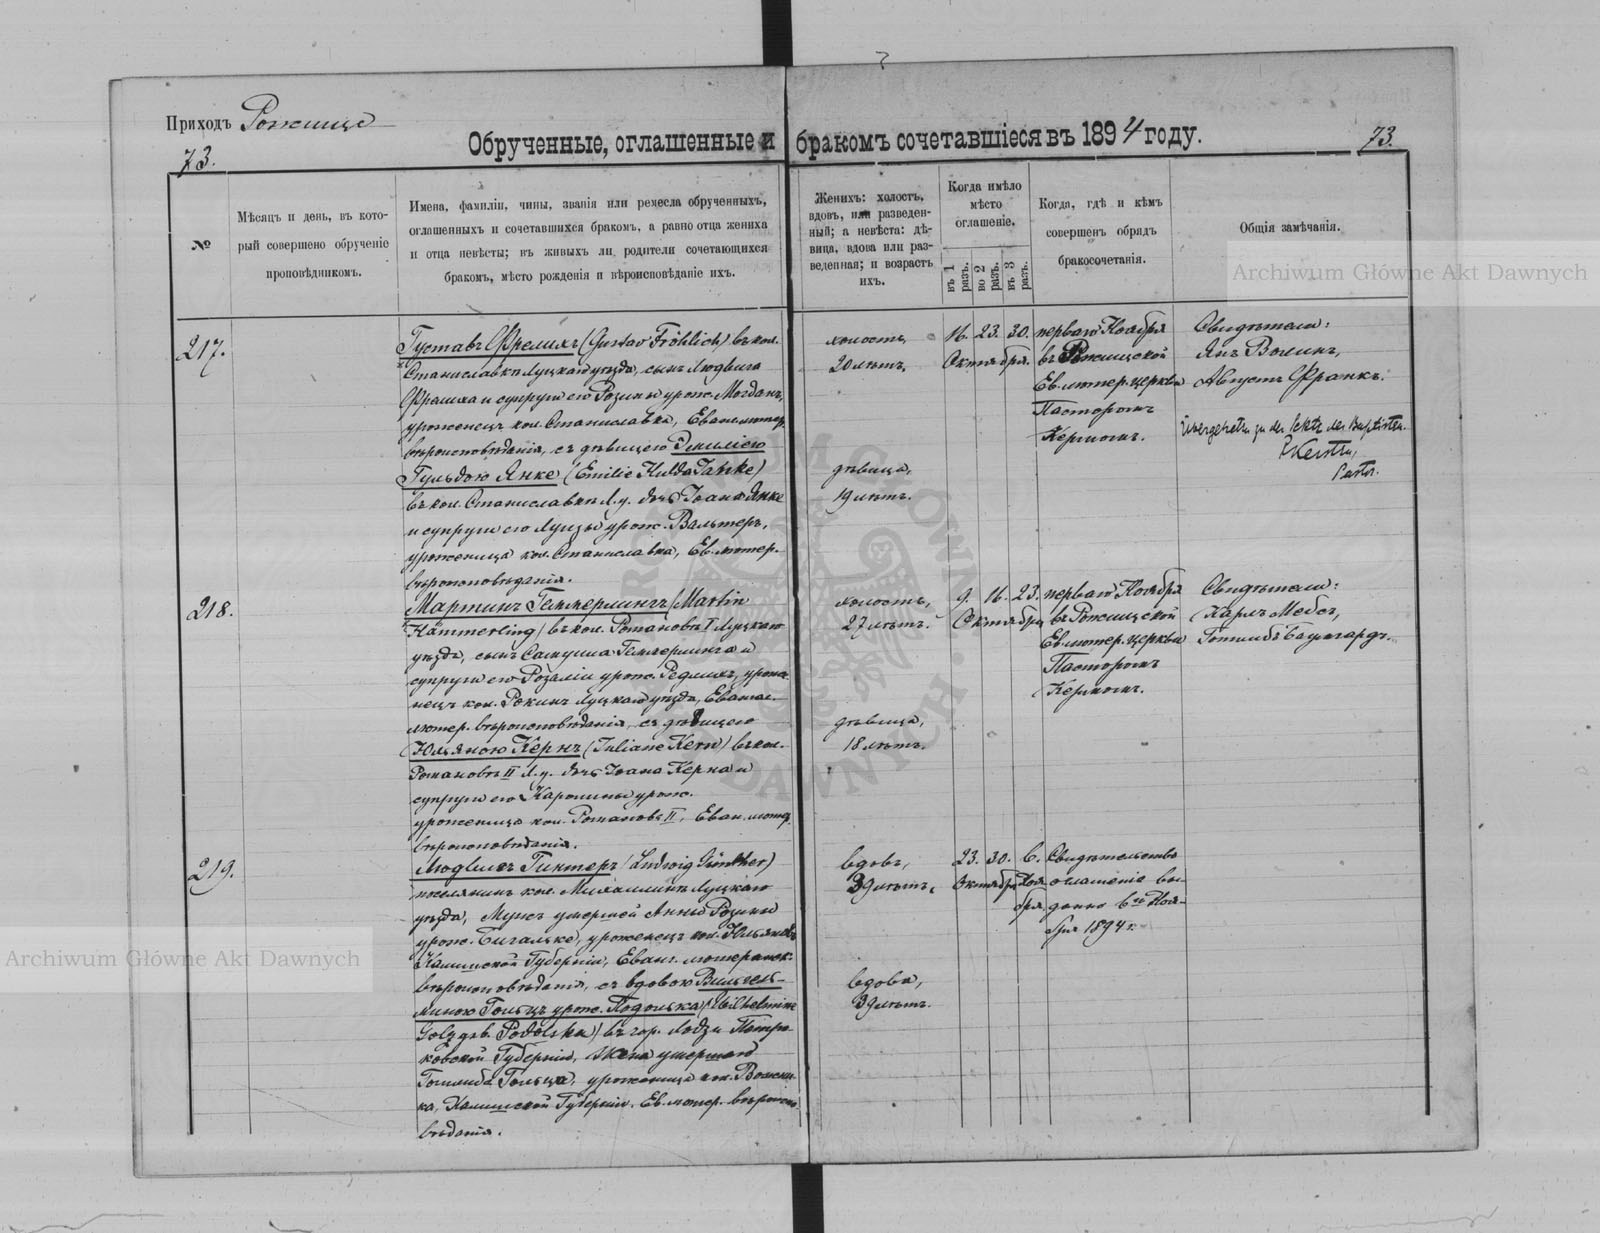 Приходъ Рожище
Обрученные, оглашенные и бракомъ сочетавшіеся въ 1894 году.
73.
73.
№
Мѣсяцъ и день, въ кото-
рый совершено обрученіе
проповѣдникомъ.
Имена, фамиліи, чины, званія или ремесла обрученныхъ,
оглашенныхъ и сочетавшихся бракомъ, а равно отца жениха
и отца невѣсты; въ живыхъ ли родители сочетающихся
бракомъ, мѣсто рожденія и вѣроисповѣданіе ихъ.
Женихъ: холостъ,
вдовъ, или разведен-
ный; а невѣста: дѣ-
вица, вдова или раз-
веденная; и возрастъ
ихъ.
Когда имѣло
мѣсто
оглашеніе.
въ 1 разъ.
во 2 разъ.
въ 3 разъ.
Когда, гдѣ и кѣмъ
совершенъ обрядъ
бракосочетанія.
Общія замѣчанія.
217.
Густавъ Фрелихъ (Gustav Fröhlich) въ кол.
Станиславкѣ Луцкаго уѣзда, сынъ Людвига
Фрелиха и супруги его Розины урож.
уроженецъ кол. Станиславка, Еван. лютер.
вѣроисповѣданія, съ дѣвицею Эмиліею
Гульдою Янке (Emilie Hulda Jahke)
въ кол. Станиславкѣ Л. у. дочь Іоана Янке
и супруги его Луизы урож. Вальтеръ,
уроженица кол. Станиславка, Ев. лютер.
вѣроисповѣданія.
холостъ,
20 лѣтъ,
дѣвица,
19 лѣтъ.
16. 23. 30.
Октября.
перваго Ноября
въ Рожищской
Ев. лютер. церкви
Пасторомъ
Керстомъ.
Свидѣтели:
Янъ Волинъ,
Августъ Франкъ.
Übergetreten zu der Sekte der Baptisten.
Kersten,
Pastor.
218.
Мартинъ Геммерлингъ (Martin
Hämmerling) въ кол. Романовъ I Луцкаго
уѣзда, сынъ Самуила Геммерлинга и
супруги его Розаліи урож. Редлихъ, уроже-
нецъ кол. Рокинъ Луцкаго уѣзда, Еванг.
лютер. вѣроисповѣданія, съ дѣвицею
Юльяною Кернъ (Juliane Kern) въ кол.
Романовъ II Л. у. дочь Іоана Керна и
супруги его Каролины урож.
уроженица кол. Романовъ II, Еван. лютер.
вѣроисповѣданія.
холостъ,
27 лѣтъ.
дѣвица,
18 лѣтъ.
9. 16. 23.
Октября
перваго Ноября
въ Рожищской
Ев. лютер. церкви
Пасторомъ
Керстомъ.
Свидѣтели:
Карлъ Мебесъ,
Готлибъ Баумгардъ.
219.
Людвигъ Гинтеръ (Ludwig Günther)
поселянинъ кол. Михаллинъ Луцкаго
уѣзда, Мужъ умершей Анны Розины
урож. уроженецъ кол. Юльяновъ
Калишской Губерніи, Еванг. лютеранск.
вѣроисповѣданія, съ вдовою Вильгель-
миною Гольцъ урож. Подольска (Wilhelmine
Golz geb. Podolska) въ гор. Лодзи Петро-
ковской Губерніи, Жена умершаго
Готлиба Гольца, уроженица кол.
ка, Калишской Губерніи. Ев. лютер. вѣроиспо-
вѣданія.
вдовъ,
39 лѣтъ,
вдова,
39 лѣтъ.
23. 30. 6.
Октября Ноя-
бря
Свидѣтельство
оглашеніе вы-
дано 6го Ноя-
бря 1894 г.
Archiwum Główne Akt Dawnych
Archiwum Główne Akt Dawnych
ARCHIWUM GŁÓWNE AKT DAWNYCH